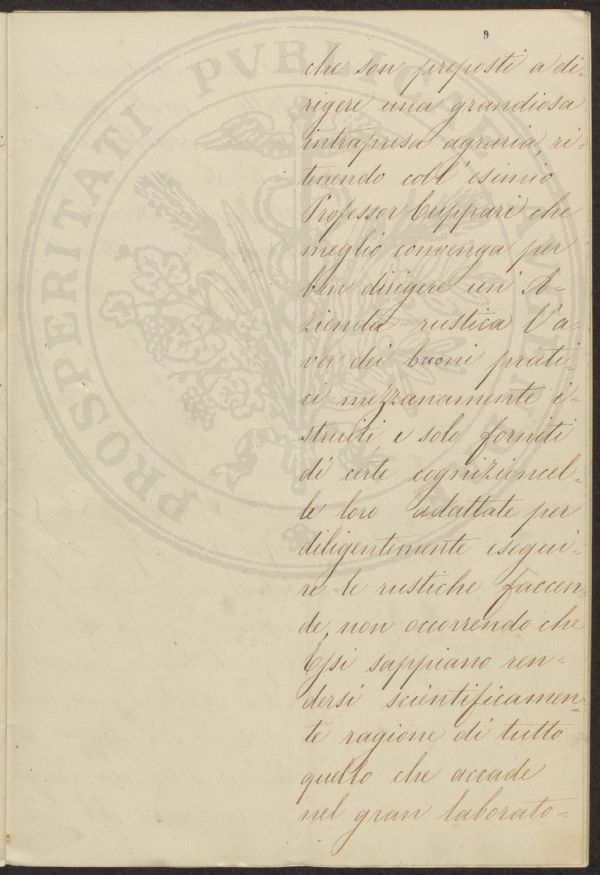 9
che son preposti a di-
rigere una grandiosa
intrapresa agraria, ri-
tenendo coll' esimio
Professor Cuppari che
meglio convenga per
ben dirigere un' A-
zienda rustica l' a-
ver dei buoni prati-
ci mezzanamente i-
struiti e solo forniti
di certe cognizioncel-
le loro adattate per
diligentemente esegui-
re le rustiche faccen-
de, non occorrendo che
Essi sappiano ren-
dersi scientificamen-
te ragione di tutto
quello che accade
nel gran laborato-
PROSPERITATI PVBLICAE